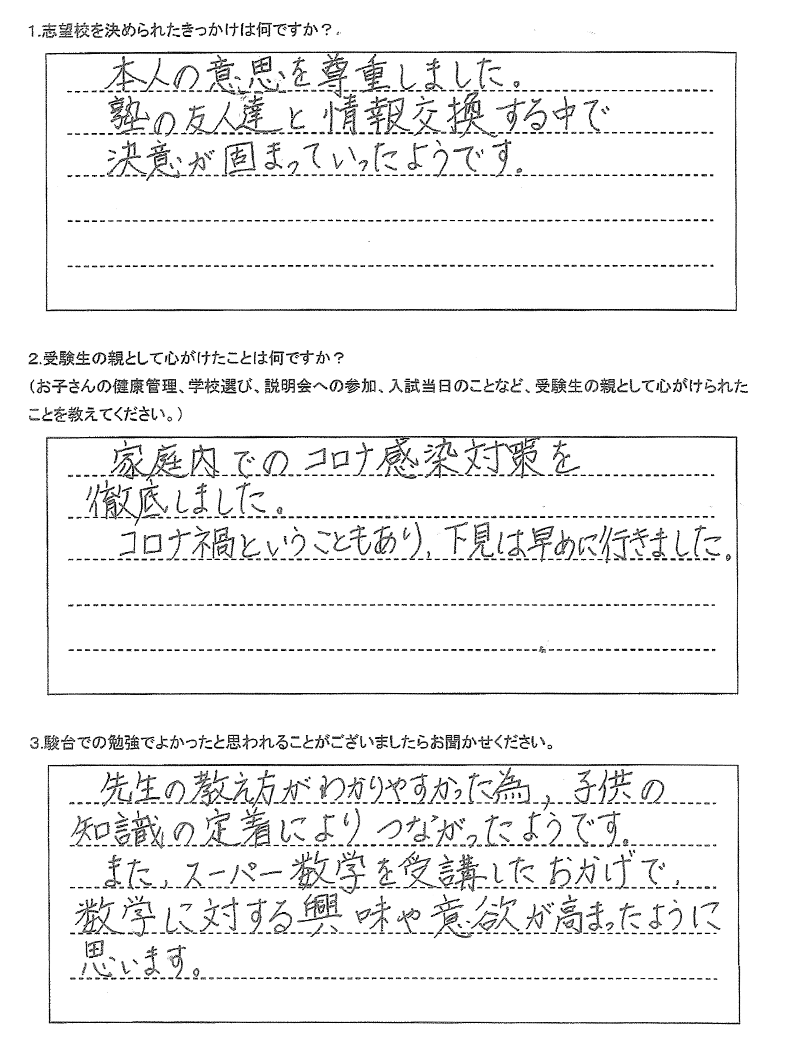 1.志望校を決められたきっかけは何ですか？
本人の意思を尊重しました。
塾の友人達と情報交換する中で
決意が固まっていったようです。
2.受験生の親として心がけたことは何ですか？
（お子さんの健康管理、学校選び、説明会への参加、入試当日のことなど、受験生の親として心がけられた
ことを教えてください。）
家庭内でのコロナ感染対策を
徹底しました。
コロナ禍ということもあり、下見は早めに行きました。
3.駿台での勉強でよかったと思われることがございましたらお聞かせください。
先生の教え方がわかりやすかった為、子供の
知識の定着によりつながったようです。
また、スーパー数学を受講したおかげで、
数学に対する興味や意欲が高まったように
思います。